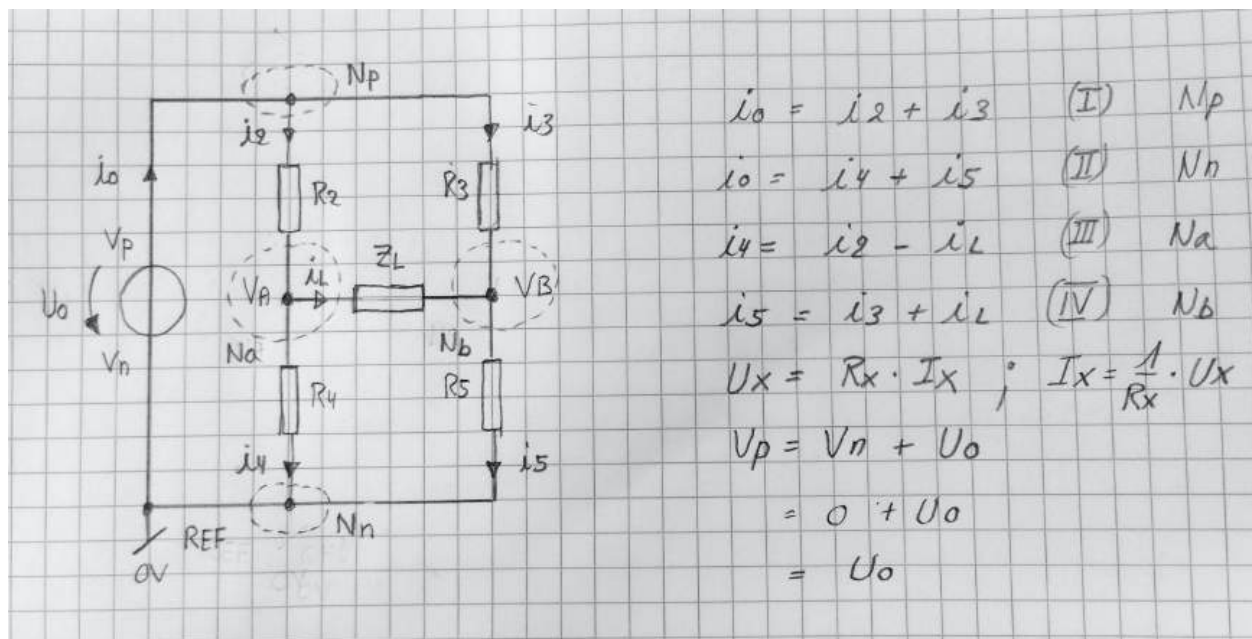 Np
i2
i3
i0
R2
R3
Vp
ZL
U0
VA
iL
VB
Vn
Na
Nb
R4
R5
i4
i5
Nn
REF
0V
i0 = i2 + i3 (I) Np
i0 = i4 + i5 (II) Nn
i4 = i2 - iL (III) Na
i5 = i3 + iL (IV) Nb
Ux = Rx · Ix ; Ix = 1/Rx · Ux
Vp = Vn + U0
= 0 + U0
= U0